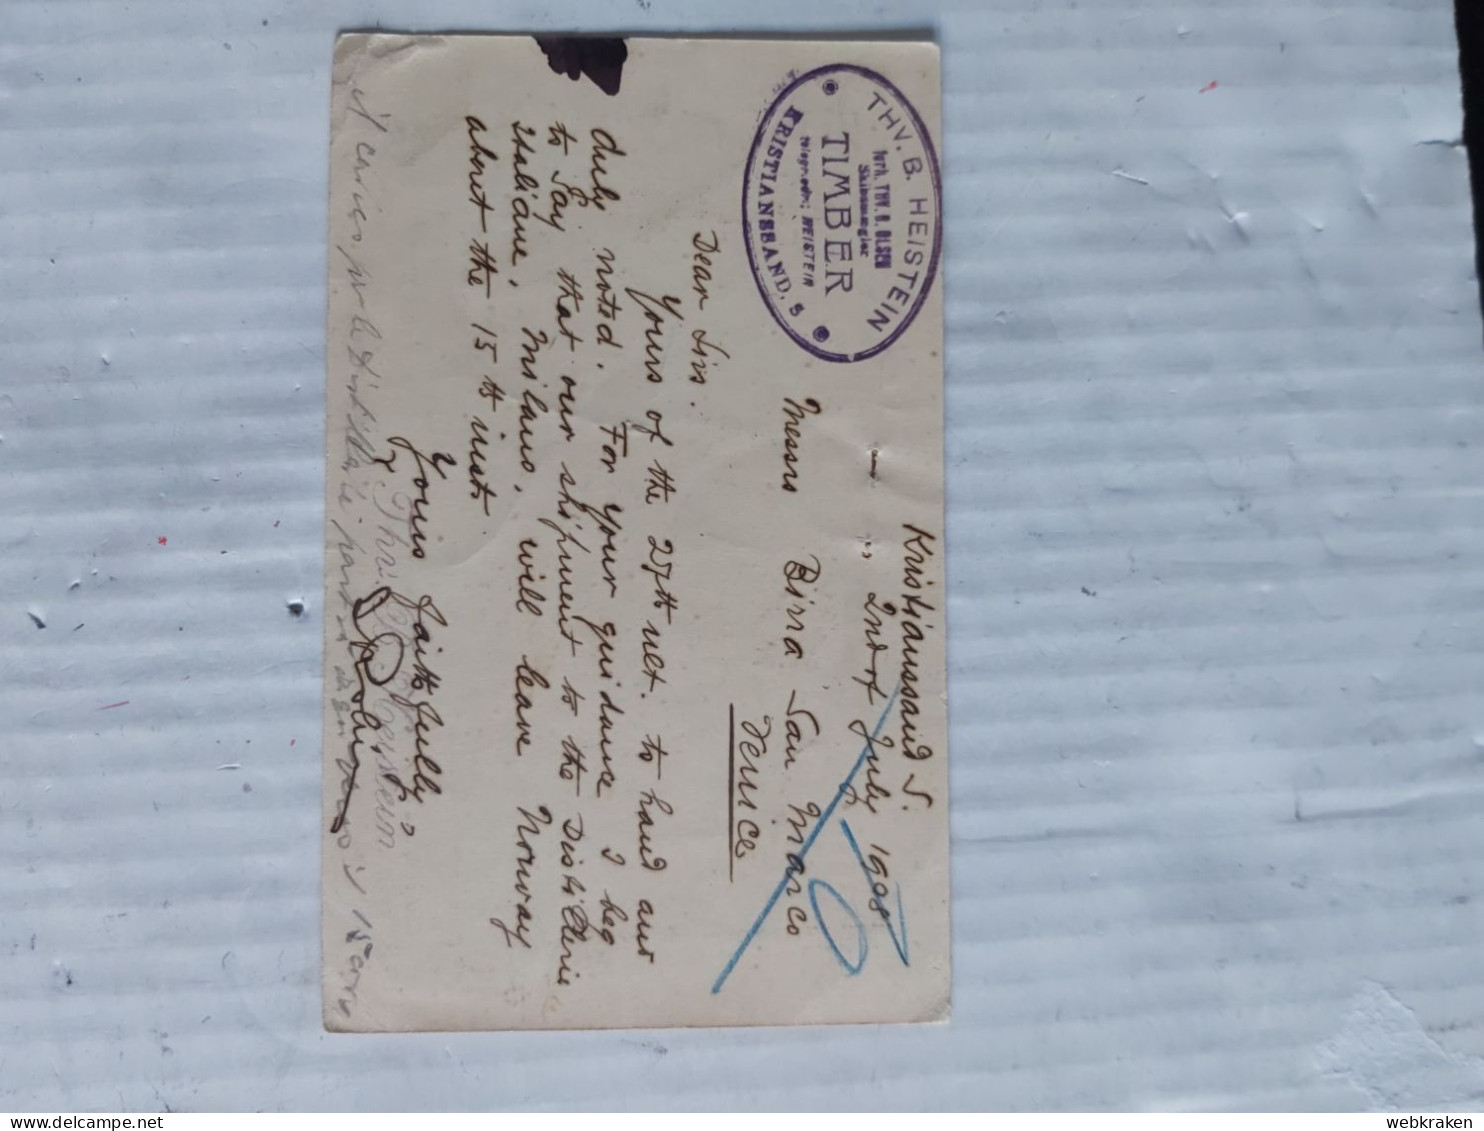 THV. B. HEISTEIN
forh. THV. B. OLSEN
Skibsmægler
TIMBER
telegr.adr.: HEISTEIN
KRISTIANSSAND. S
Kristianssand S.
2nd of July 1908
Messrs Birra San Marco
Venice
Dear Sirs.
Yours of the 27th ult. to hand and
duly noted. For your guidance I beg
to say that our shipment to the Distillerie
Italiane, Milano, will leave Norway
about the 15th inst.
Yours faithfully
Heistein
il carico per le Distillerie
il 15 corr
webkraken